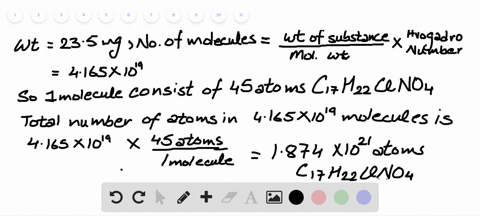 wt = 23.5 mg, No. of molecules = wt of substance / Mol. wt × Avogadro Number
= 4.165×10¹⁹
So 1 molecule consist of 45 atoms C17H22ClNO4
Total number of atoms in 4.165×10¹⁹ molecules is
4.165×10¹⁹ × 45 atoms / 1 molecule = 1.874 ×10²¹ atoms
C17H22ClNO4